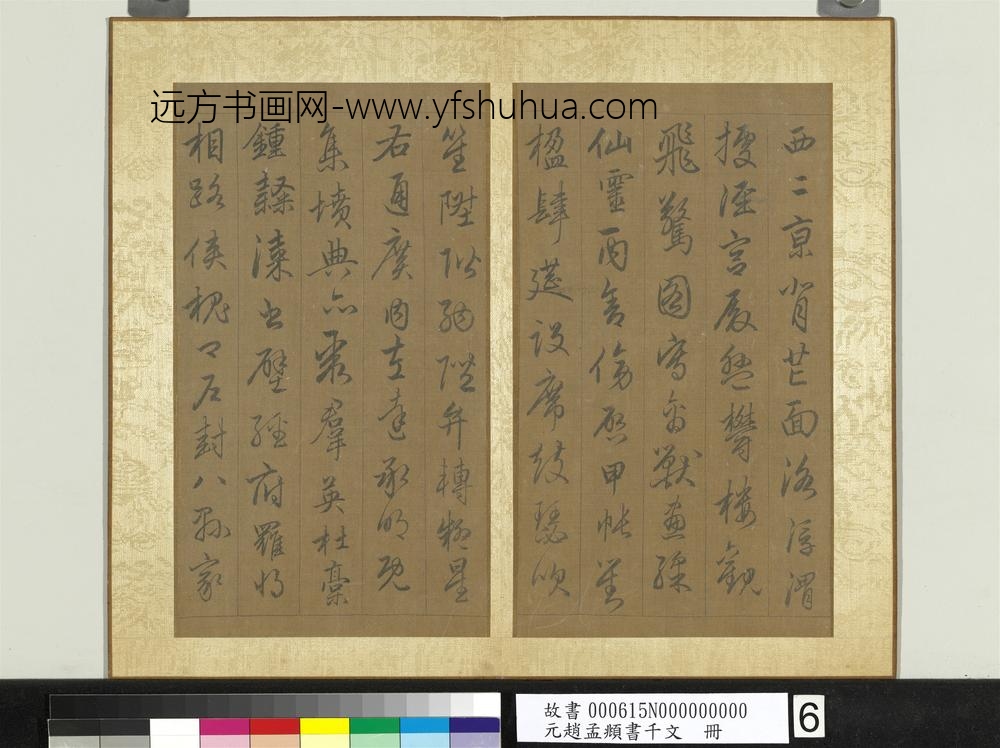 远方书画网-www.yfshuhua.com
西二京背芒面洛浮渭
據涇宮殿盤鬱樓觀
飛驚圖寫禽獸畫綵
仙靈丙舍傍啟甲帳對
楹肆筵設席鼓瑟吹
笙陞階納陛弁轉疑星
右通廣內左達承明既
集墳典亦聚羣英杜稾
鍾隸漆書壁經府羅將
相路俠槐卿戶封八縣家
故書 000615N000000000
元趙孟頫書千文 冊
6